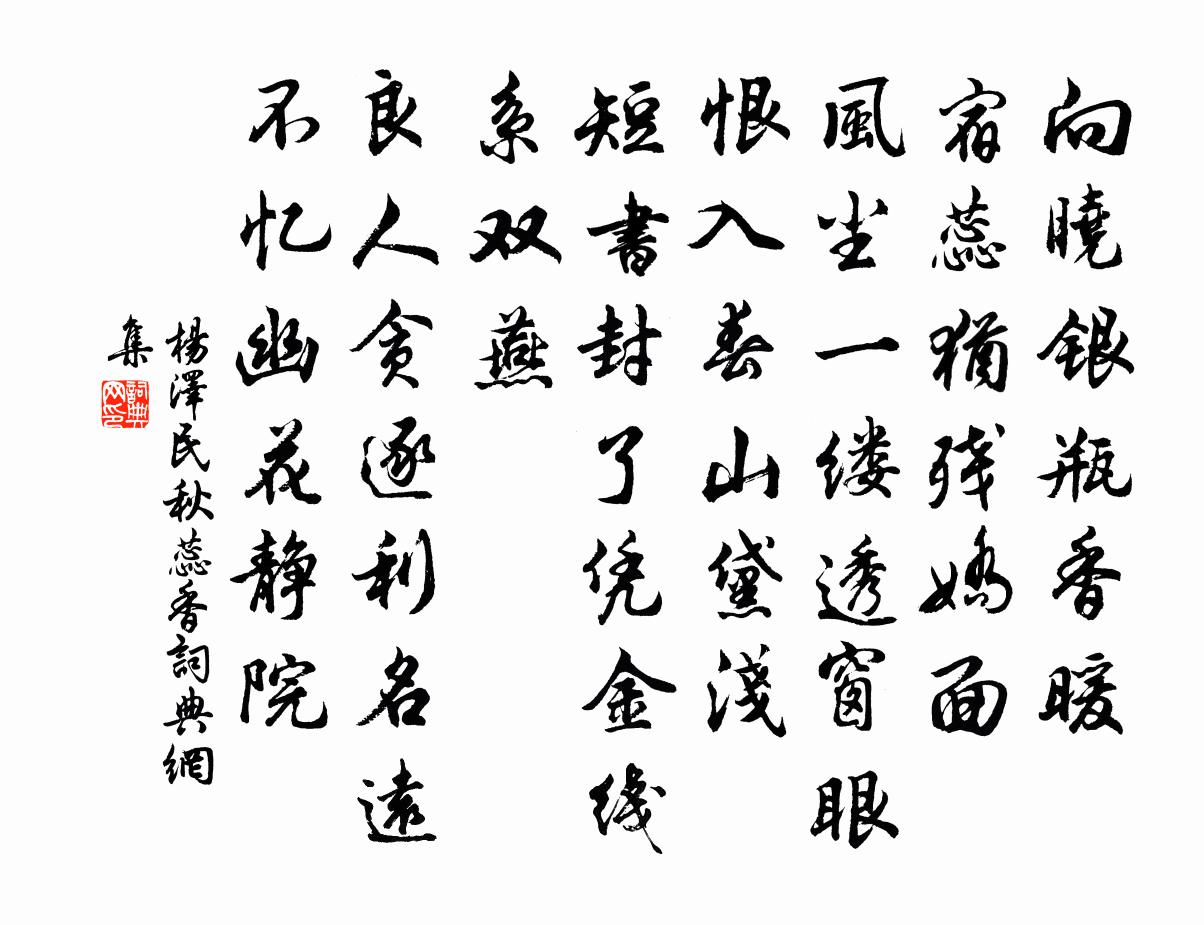 向曉銀瓶香暖
宿蕊猶残嬌面
風尘一缕透窗眼
恨入春山黛淺
短書封了凭金线
系双燕
良人贪逐利名遠
不忆幽花静院
楊澤民秋蕊香詞典網
集
詞典
网印